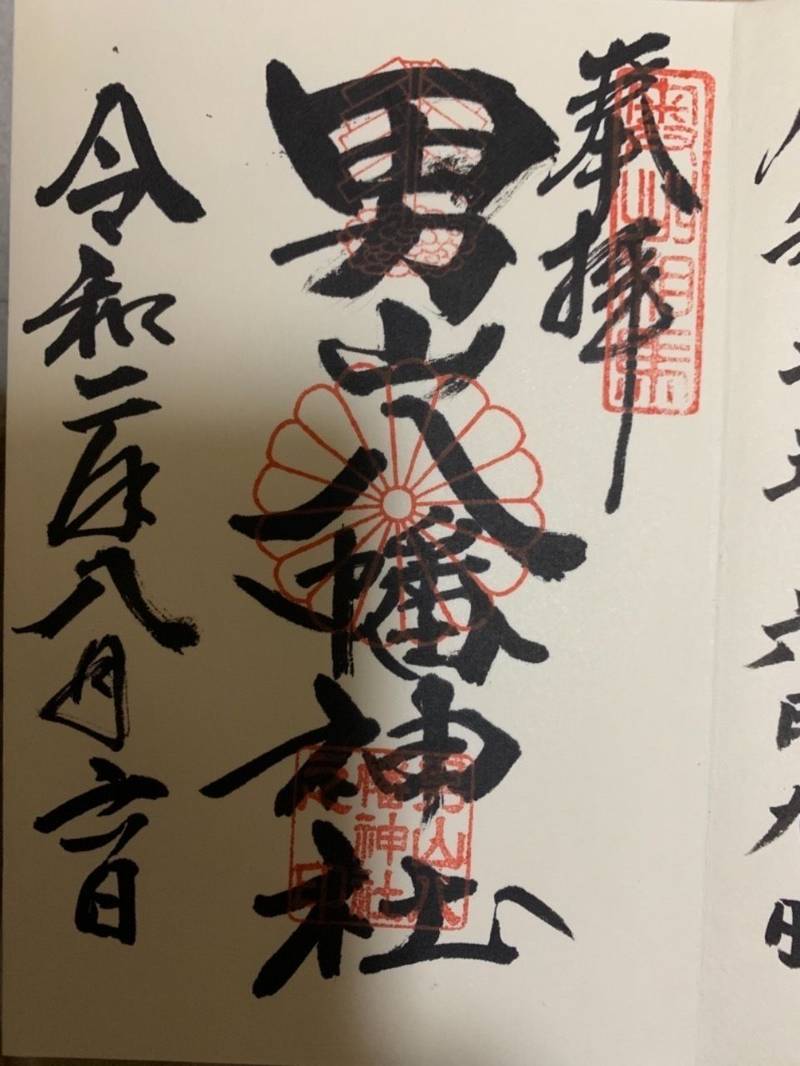 奉拝
男山八幡神社
男山八
幡神社
之印
令和二年八月六日